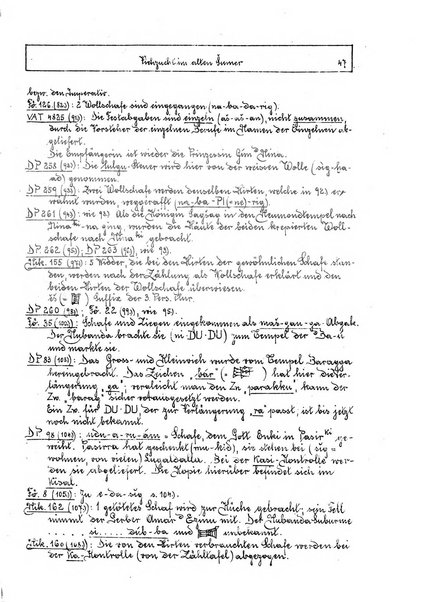 Viehzucht im alten Sumer 47
bezw. den Imperativ.
Fö. 126 (92): 2 Wollschafe sind eingegangen (na-ba-da-rig).
VAT 4825 (93): Die Festabgaben sind einzeln (aš-aš-an), nicht zusammen,
durch die Vorsteher der einzelnen Berufe im Namen der Einzelnen ab-
geliefert.
Die Empfängerin ist wieder die Prinzessin Gim Nina.
DP 258 (93): Die Steuer wird hier von der weissen Wolle (sig-ba-
ad) genommen.
DP 259 (93): Zwei Wollschafe werden denselben Hirten, welche in 92) er-
wähnt wurden, wegeräfft (na-ba-PI(=ne)-rig).
DP 261 (93): wie 93). Als die Königin Sagsag in den Neumondtempel nach
Nina ki-na ging, wurden die Häute der beiden krepierten Woll-
schafe nach Nina ki gebracht.
DP 262 (95); DP 263 (96), wie 93).
Nik. 155 (97): 5 Widder, die bei den Hirten der gewöhnlichen Schafe stun-
den, werden nach der Zählung als Wollschafe erklärt und den
beiden Hirten der Wollschafe überwiesen.
eš (= ) Suffix der 3. Pers. Plur.
DP 260 (98); Fö. 22 (99), wie 95).
Fö. 35 (100): Schafe und Ziegen eingekommen als maš-gan-ga-Abgabe.
Der Nubanda brachte sie (ni DU-DU) zum Tempel der Ba-u
und markte sie.
DP 83 (103): Das Gross- und Kleinvieh wurde vom Tempel Baragga
hereingebracht. Das Zeichen „bár" (= ) hat hier die Ver-
längerung „ga", vergleicht man den Zn. parakku", kann der
Zw. „barag" sicher vorausgesetzt werden.
Ein Zw. für DU-DU, der zur Verlängerung „ra passt, ist bis jetzt
noch nicht bekannt.
DP 98 (104): udu-a-ru-a = Schafe, dem Gott Enki in Pasir ki ge-
weiht. Pasirra hat geschenkt (mu-kid), sie stehen bei (sig =
wohnen, von vielen) Lugaldalla. Bei der Kasi-Kontrolle wer-
den sie abgeliefert. Die Kopie hierüber befindet sich im
Kisal.
Fö. 8 (105): Zu e-da-sig s. 104).
Nik. 162 (107): 1 getötetes Schaf wird zur Küche gebracht; sein Fell
nimmt der Gerber Amar Ezinu mit. Der Nubanda-Suburme
... ... ... düb-ba und unbekannt.
Nik. 160 (108): Die von den Hirten verbrauchten Schafe werden bei
der Ka-Kontrolle (von der Zähltafel) abgezogen.